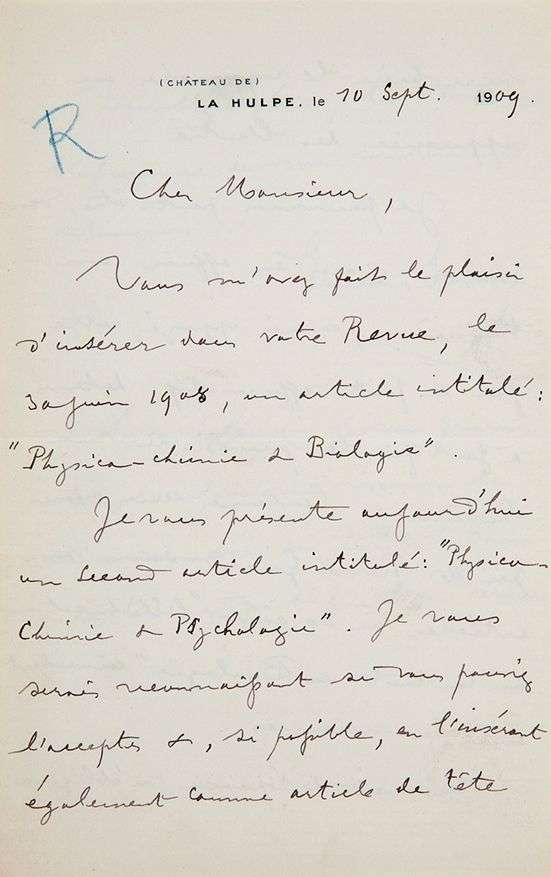 R
(CHÂTEAU DE)
LA HULPE, le 10 Sept. 1909.
Cher Monsieur,
Vous m'avez fait le plaisir
d'insérer dans votre Revue, le
30 juin 1908, un article intitulé :
"Physico-chimie & Biologie".
Je vous présente aujourd'hui
un second article intitulé : "Physico-
Chimie & Psychologie". Je vous
serais reconnaissant si vous pouviez
l'accepter &, si possible, en l'insérant
également comme article de tête